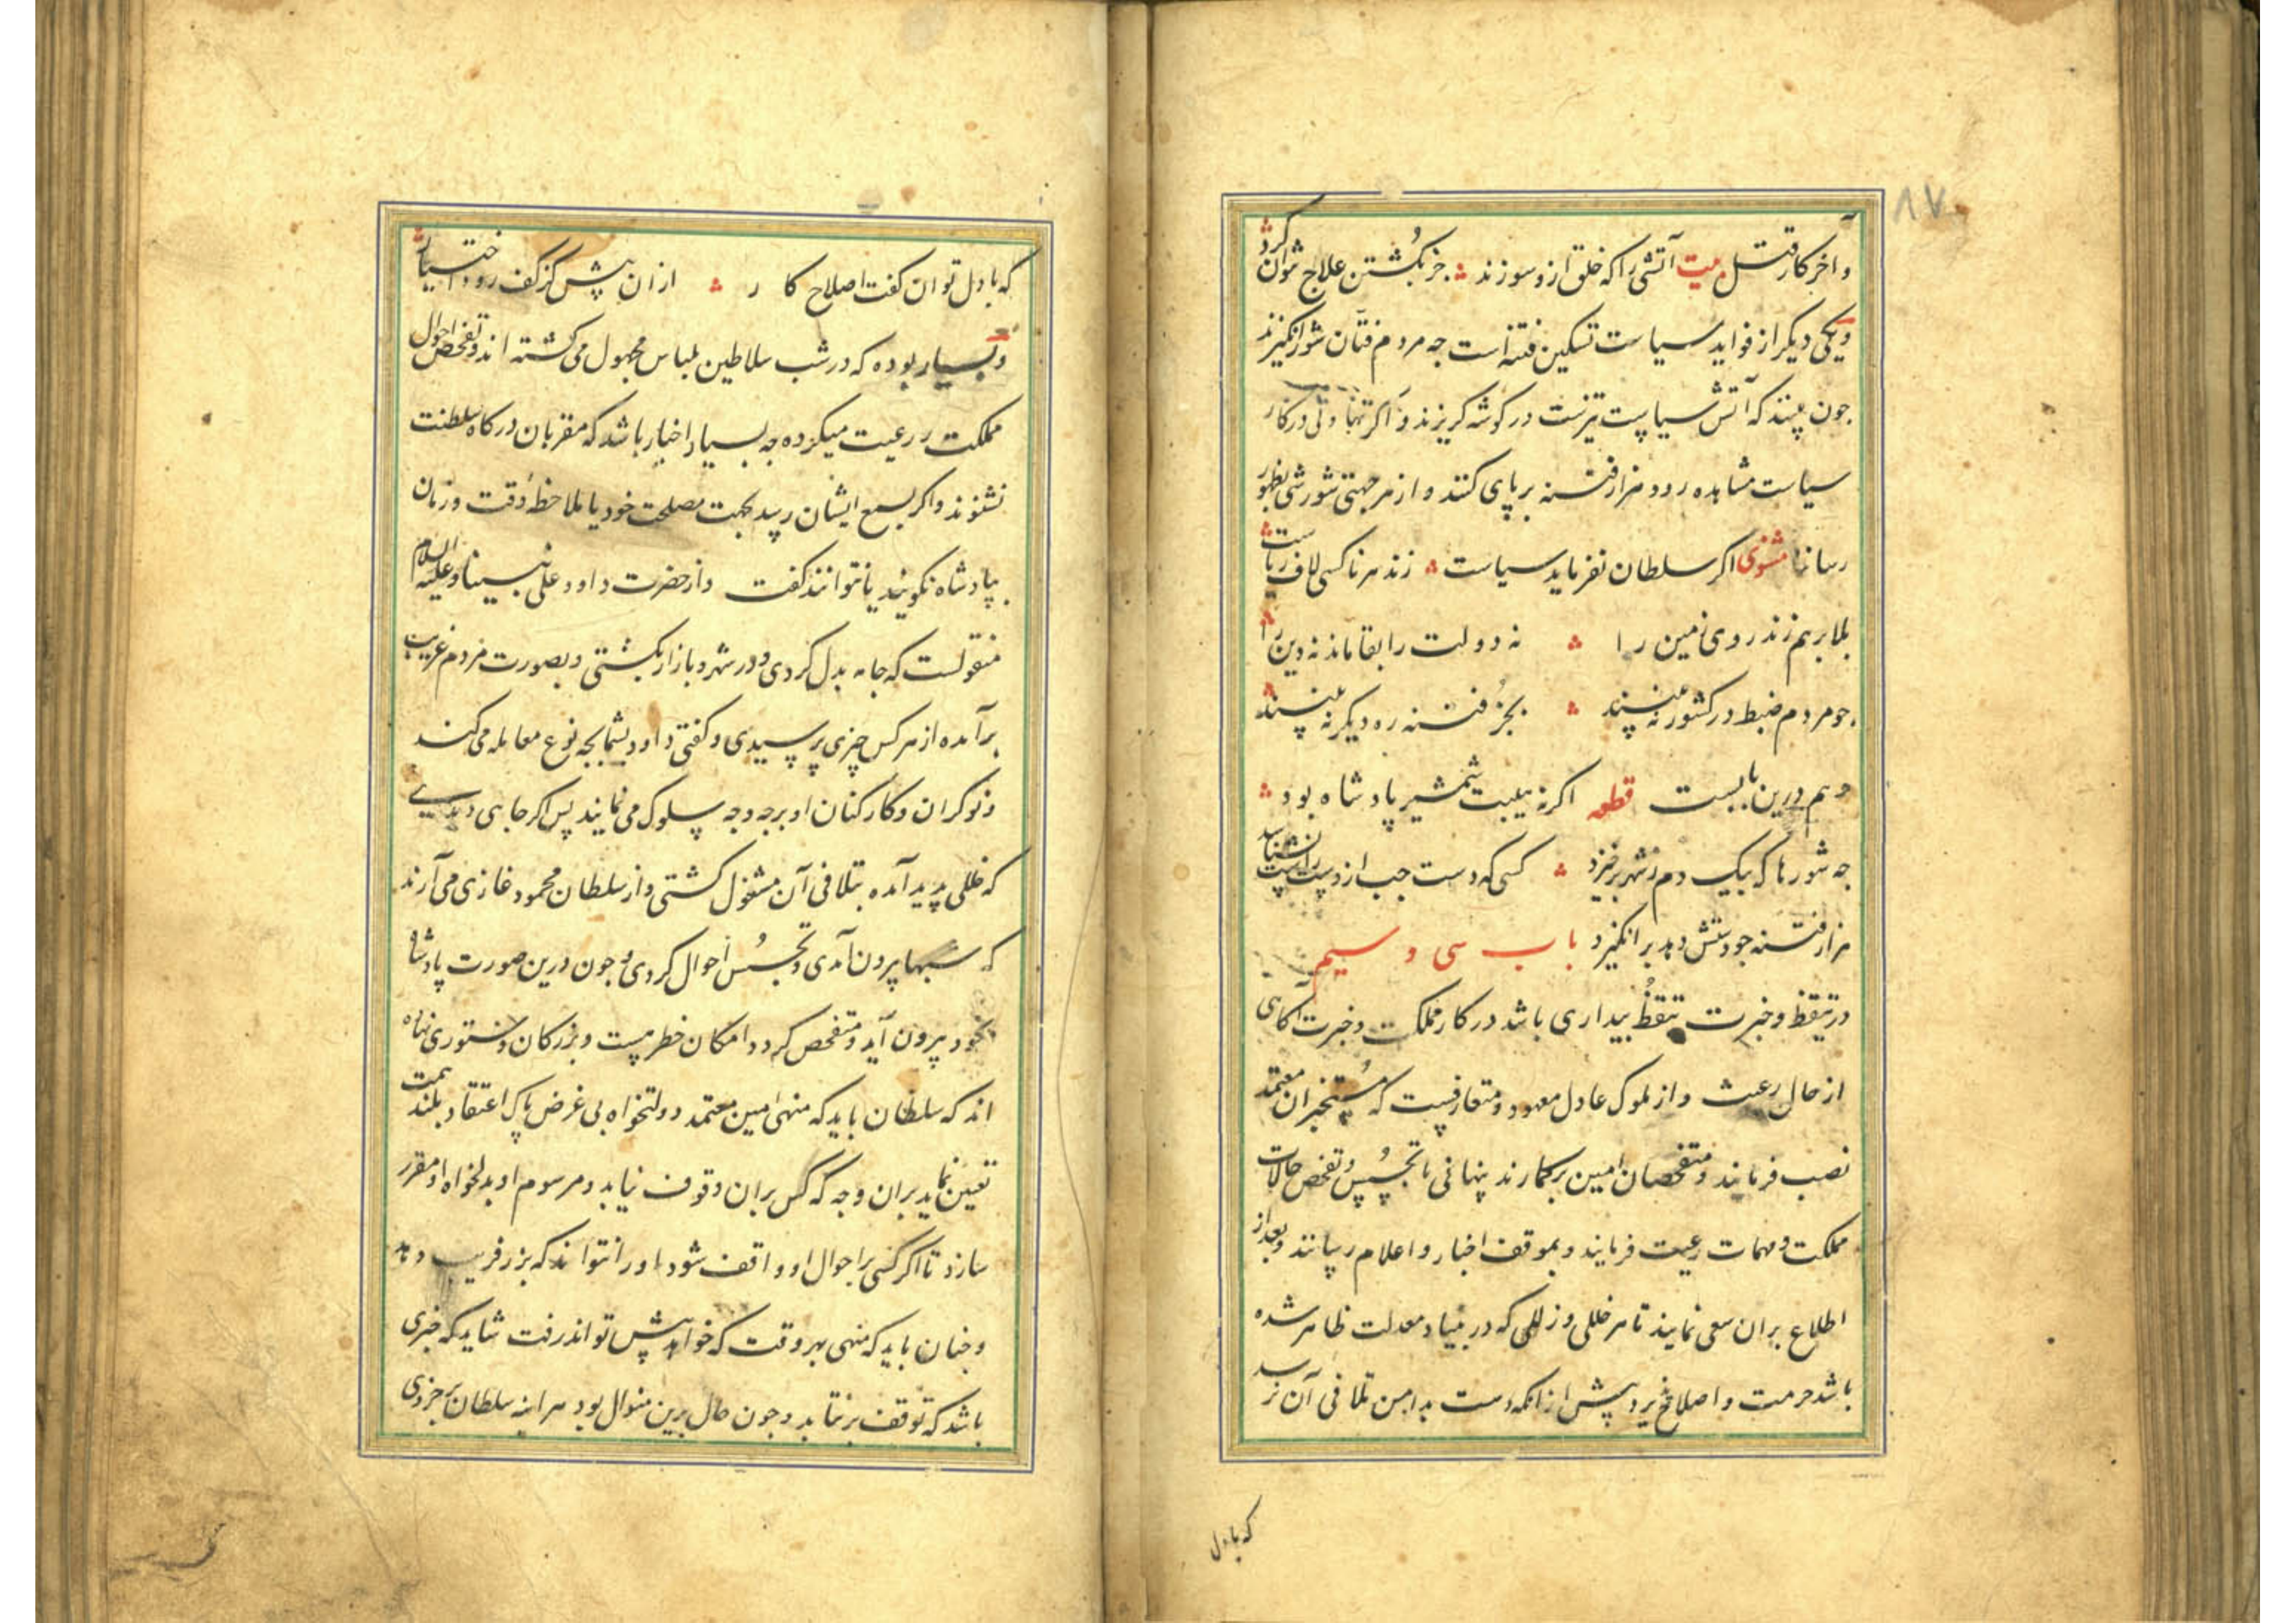 ۸۷
و آخر کار قتل بیت آتشی را که خلق ازو سوزند جز بکشتن علاج نتوان کرد
و یکی دیگر از فواید سیاست تسکین فتنه است جه مردم فتّان شورانگیز ند
جون بینند که آتش سیاست تیزست در کوشه کریزند و اکر تهاونی در کار
سیاست مشاهده رود هزار فتنه بر پای کنند و از هر جهتی شورشی بظهور
رسانند مثنوی اکر سلطان نفرماید سیاست زند هر ناکسی لاف ریاست
بلا برهم زند روی زمین را نه دولت را بقا ماند نه دین را
جو مردم ضبط در کشور نه بینند بجز فتنه ره دیکر نه بینند
و هم درین بابست قطعه اکر نه هیبت شمشیر پادشاه بود
جه شورها که بیک دم ز شهر برخیزد کسی که دست جب از دست راست نشناسد
هزار فتنه جو دستش دهد بر انکیزد باب سی و سیم
در تیقظ و خبرت تیقّظ بیداری باشد در کار مملکت و خبرت آکاهی
از حال رعیت و از ملوک عادل معهود و متعارفست که مُستخبران معتمد
نصب فرمایند و متفحصان امین برکمارند پنهانی تا تجسّس و تفحص حالات
مملکت و مهمات رعیت فرمایند و بموقف اخبار و اعلام رسانند و بعد از
اطلاع بران سعی نمایند تا هر خللی و زللی که در بنیاد معدلت ظاهر شده
باشد مرمت و اصلاح پذیرد پیش از انکه دست بدامن تلافی آن نرسد
که با دل
که با دل توان کفت اصلاح کار ازان پیش کز کف رود اختیار
و بسیار بوده که در شب سلاطین بلباس مجهول می کشته اند و تفحص احوال
مملکت و رعیت میکرده جه بسیار اخبار باشد که مقربان درکاه سلطنت
نشنوند و اکر بسمع ایشان رسد بجهت مصلحت خود یا ملاحظهٔ وقت و زمان
بپادشاه نکویند یا نتوانند کفت و از حضرت داود علی نبینا و علیه السلام
منقولست که جامه بدل کردی و در شهر و بازار بکشتی و بصورت مردم غریب
برآمده از هر کس چیزی پرسیدی و کفتی داود بشما بچه نوع معامله می کند
و نوکران و کارکنان او برجه وجه سلوک می نمایند پس اکر جایی دیدی
که خللی پدید آمده بتلافی آن مشغول کشتی و از سلطان محمود غازی می آرند
که شبها بیرون آمدی و تجسّس احوال کردی و جون درین صورت پادشاه
بخود بیرون آید و متفحص کردد امکان خطر هست و بزرکان دستوری نهاده
اند که سلطان باید که منهی امین معتمد دولتخواه بی غرض پاک اعتقاد بلند همت
تعیین نماید بران وجه که کس بران وقوف نیابد و مرسوم او بدلخواه او مقرر
سازد تا اکر کسی بر احوال او واقف شود او را نتواند که بزر فریب دهد
و جنان باید که منهی بهر وقت که خواهد پیش تواند رفت شاید که خبری
باشد که توقف برنتابد و جون حال برین منوال بود هر اینه سلطان بر جزوی